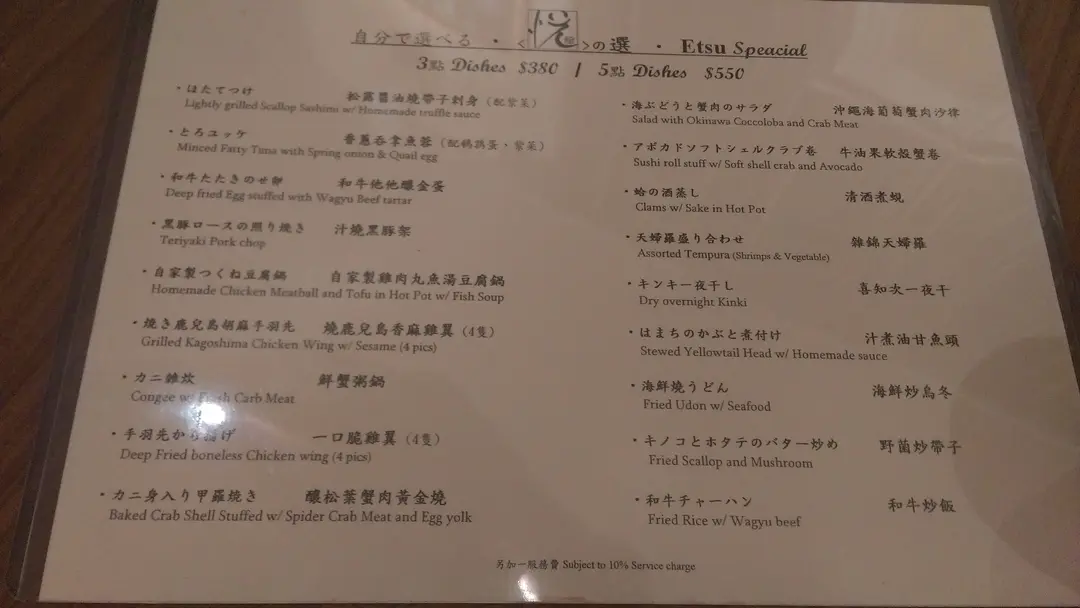 自分で選べる ・ <悦>の選 ・ Etsu Speacial
3點 Dishes $380 / 5點 Dishes $550
・ほたてつけ 松露醬油燒帶子刺身 (配紫菜)
Lightly grilled Scallop Sashimi w/ Homemade truffle sauce
・とろユッケ 香蔥吞拿魚蓉 (配鵪鶉蛋、紫菜)
Minced Fatty Tuna with Spring onion & Quail egg
・和牛たたきのせ卵 和牛他他釀金蛋
Deep fried Egg stuffed with Wagyu Beef tartar
・黒豚ロースの照り焼き 汁燒黑豚架
Teriyaki Pork chop
・自家製つくね豆腐鍋 自家製雞肉丸魚湯豆腐鍋
Homemade Chicken Meatball and Tofu in Hot Pot w/ Fish Soup
・焼き鹿兒島胡麻手羽先 燒鹿兒島香麻雞翼 (4隻)
Grilled Kagoshima Chicken Wing w/ Sesame (4 pics)
・カニ雑炊 鮮蟹粥鍋
Congee w/ Fresh Carb Meat
・手羽先から揚げ 一口脆雞翼 (4隻)
Deep Fried boneless Chicken wing (4 pics)
・カニ身入り甲羅焼き 釀松葉蟹肉黃金燒
Baked Crab Shell Stuffed w/ Spider Crab Meat and Egg yolk
・海ぶどうと蟹肉のサラダ 沖繩海葡萄蟹肉沙律
Salad with Okinawa Coccoloba and Crab Meat
・アボカドソフトシェルクラブ巻 牛油果軟殼蟹卷
Sushi roll stuff w/ Soft shell crab and Avocado
・蛤の酒蒸し 清酒煮蜆
Clams w/ Sake in Hot Pot
・天婦羅盛り合わせ 雜錦天婦羅
Assorted Tempura (Shrimps & Vegetable)
・キンキ一夜干し 喜知次一夜干
Dry overnight Kinki
・はまちのかぶと煮付け 汁煮油甘魚頭
Stewed Yellowtail Head w/ Homemade sauce
・海鮮焼うどん 海鮮炒烏冬
Fried Udon w/ Seafood
・キノコとホタテのバター炒め 野菌炒帶子
Fried Scallop and Mushroom
・和牛チャーハン 和牛炒飯
Fried Rice w/ Wagyu beef
另加一服務費 Subject to 10% Service charge